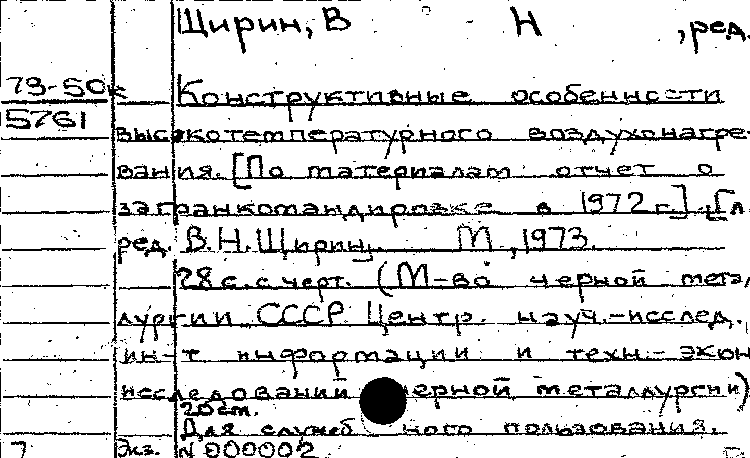 Щирин, В Н , ред.
73-50к Конструктивные особенности
5761 высокотемпературного воздухонагре-
вания. [По материалам отчет о
загранкомандировке в 1972 г.]. [Гл.
ред. В.Н. Щирин]. М, 1973.
28 с. с черт. (М-во черной метал
лургии СССР. Центр. науч.-исслед.
ин-т информации и техн.-экон
исследований черной металлургии)
20 см.
Для служебного пользования.
Экз. N 000002